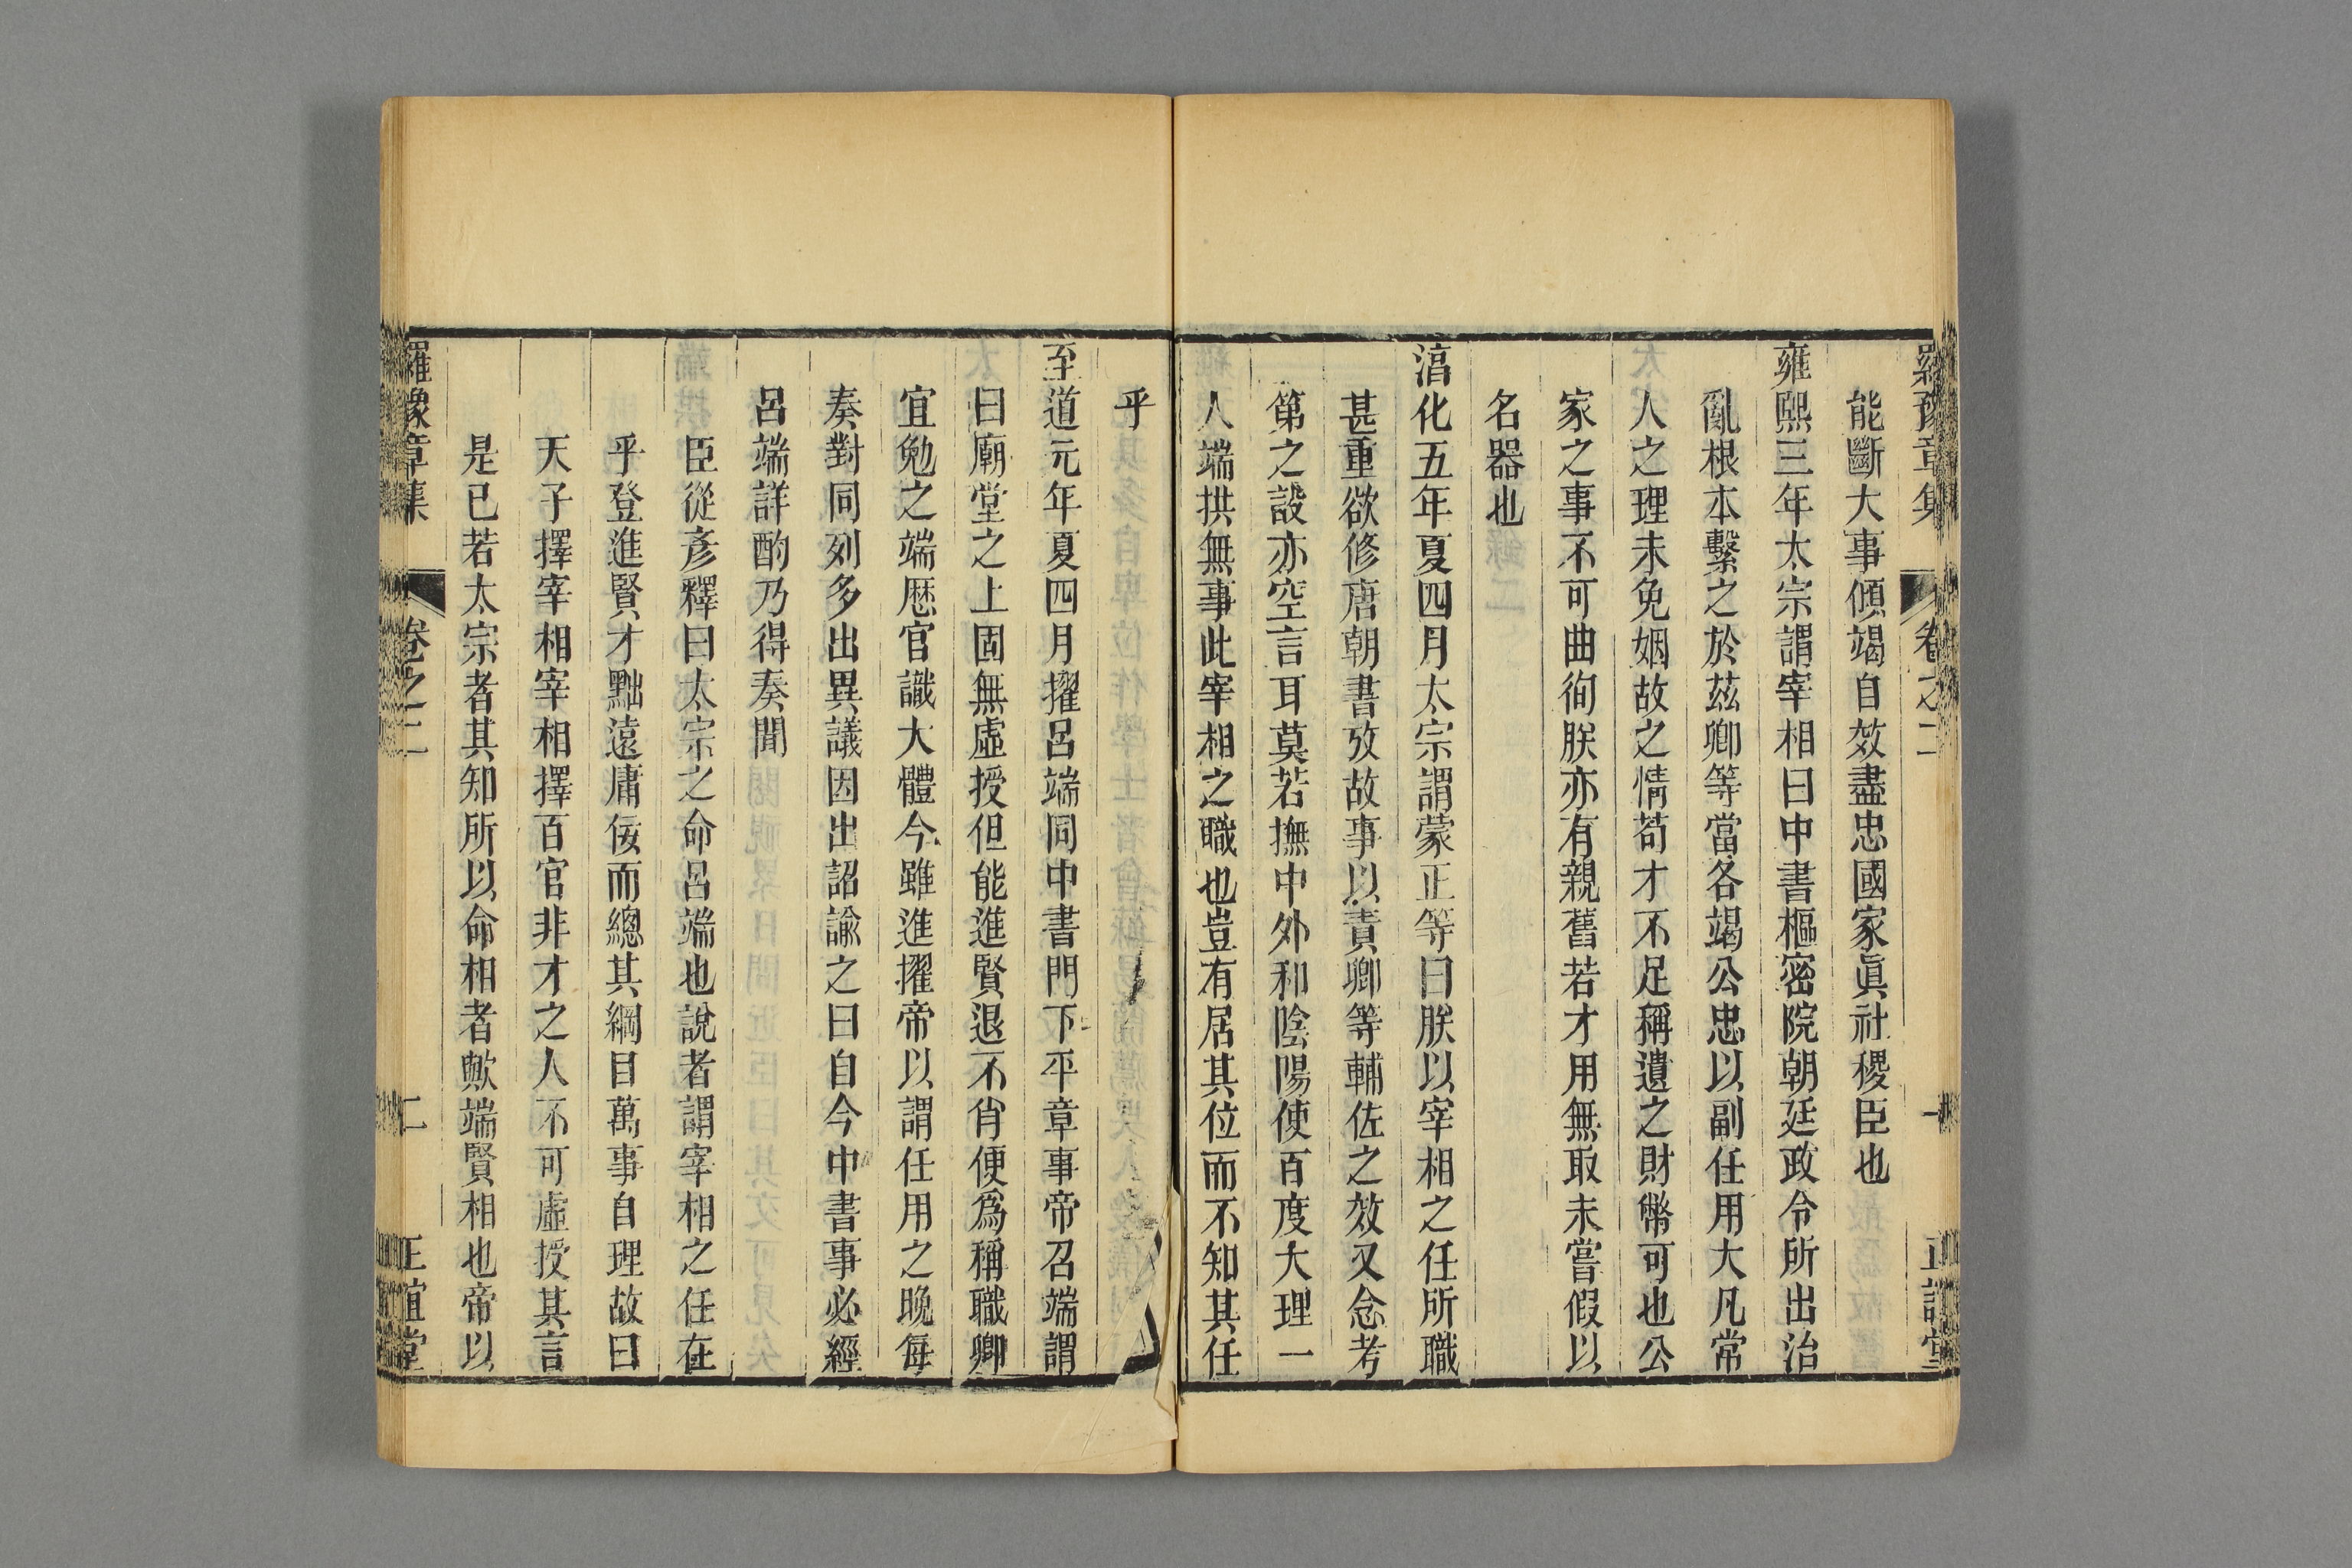 羅豫章集 卷之二 一 正誼堂
能斷大事傾竭自效盡忠國家眞社稷臣也
雍熙三年太宗謂宰相曰中書樞密院朝廷政令所出治
亂根本繫之於茲卿等當各竭公忠以副任用大凡常
人之理未免姻故之情苟才不足稱遺之財幣可也公
家之事不可曲徇朕亦有親舊若才用無取未嘗假以
名器也
淳化五年夏四月太宗謂蒙正等曰朕以宰相之任所職
甚重欲修唐朝書攷故事以責卿等輔佐之效又念考
第之設亦空言耳莫若撫中外和陰陽使百度大理一
人端拱無事此宰相之職也豈有居其位而不知其任
乎
至道元年夏四月擢呂端同中書門下平章事帝召端謂
曰廟堂之上固無虛授但能進賢退不肖便爲稱職卿
宜勉之端歷官識大體今雖進擢帝以謂任用之晚每
奏對同列多出異議因出詔諭之曰自今中書事必經
呂端詳酌乃得奏聞
臣從彥釋曰太宗之命呂端也說者謂宰相之任在
乎登進賢才黜遠庸佞而總其綱目萬事自理故曰
天子擇宰相宰相擇百官非才之人不可虛授其言
是已若太宗者其知所以命相者歟端賢相也帝以
羅豫章集 卷之二 二 正誼堂